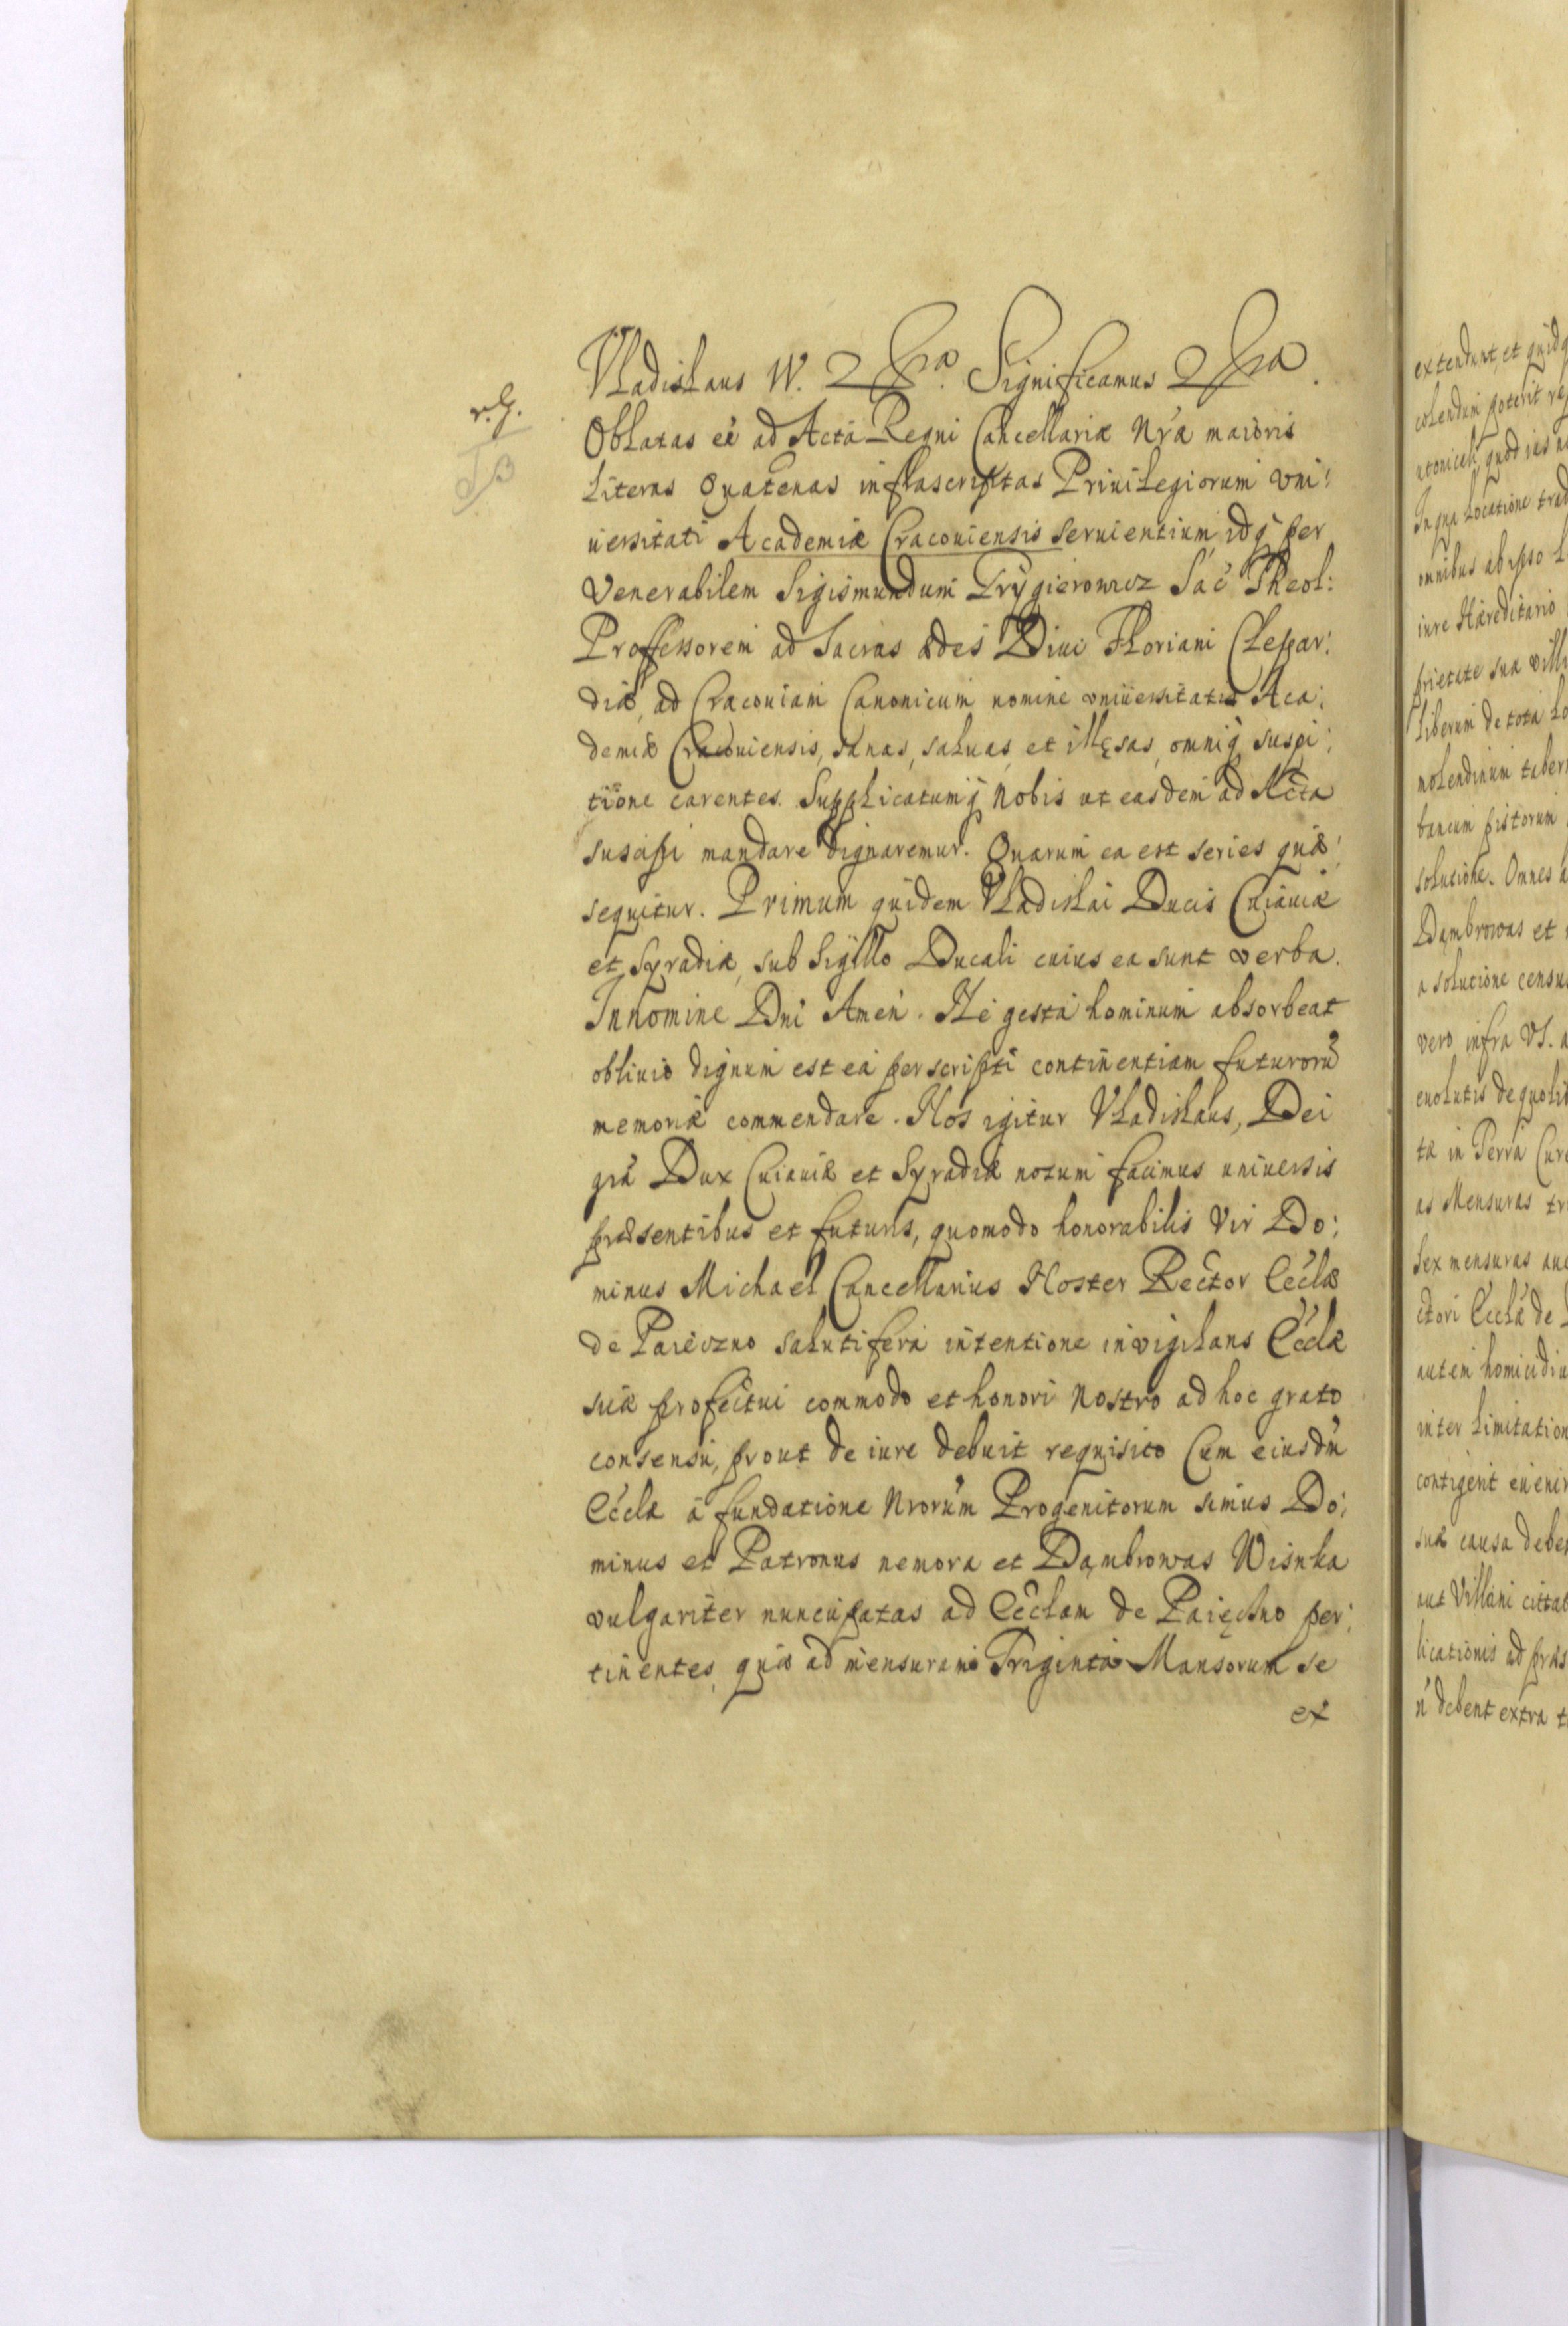 Vladislaus IV. &ra. Significamus &ra.
r. G.
Oblatas eē ad Acta Regni Cancellariæ Nræ maioris
Literas Quatenas infrascriptas Priuilegiorum vni:
uersitati Academiæ Cracouiensis seruientium, idq; per
Venerabilem Sigismundum Grÿgierowicz Sac Theol:
Professorem ad Sacras Ædes Diui Floriani Clepar:
diæ, ad Cracouiam Canonicum nomine vniuersitatis Aca:
demiæ Cracouiensis, sanas, saluas, et illęsas, omniq; suspi:
tione carentes. Supplicatumq; Nobis ut easdem ad Acta
suscipi mandare dignaremur. Quarum ea est series quæ
sequitur. Primum quidem Vladislai Ducis Cuiauiæ
et Syradiæ, sub Sigillo Ducali cuius ea sunt verba.
In nomine Dni Amen. Ne gesta hominum absorbeat
obliuio dignum est ea per scripti continentiam futurorū
memoriæ commendare. Nos igitur Vladislaus, Dei
gra Dux Cuiauiæ et Syradiæ notum facimus uniuersis
præsentibus et futuris, quomodo honorabilis Vir Do:
minus Michael Cancellarius Noster Rector Eccłæ
de Paięczno salutifera intentione invigilans Eccłæ
suæ profectui commodo et honori Nostro ad hoc grato
consensu, prout de iure debuit requisito Cum eiusdm
Eccłæ a fundatione Nrorum Progenitorum simus Do:
minus et Patronus nemora et Dąmbrowas Wisnka
vulgariter nuncupatas ad Eccłam de Paięchno per:
tinentes, quæ ad mensuram Triginta Mansorum se
ex
extendunt, et quidq
colendum poterit re
In qua Locatione trad
omnibus ab ipso
iure Hæreditario
prietate sua vill
liberum de tota
molendinum taber
bancum pistorum
solutione. Omnes a
Dąmbrowas et
a solutione censu
vero infra VI. a
euolutis de quolib
tæ in Terra Cur
as Mensuras tr
Sex mensuras aue
ctori Eccłæ de
autem homicidiu
inter limitation
contigerit euenir
suæ causa debe
aut Villani citat
licationis ad præs
n debent extra t